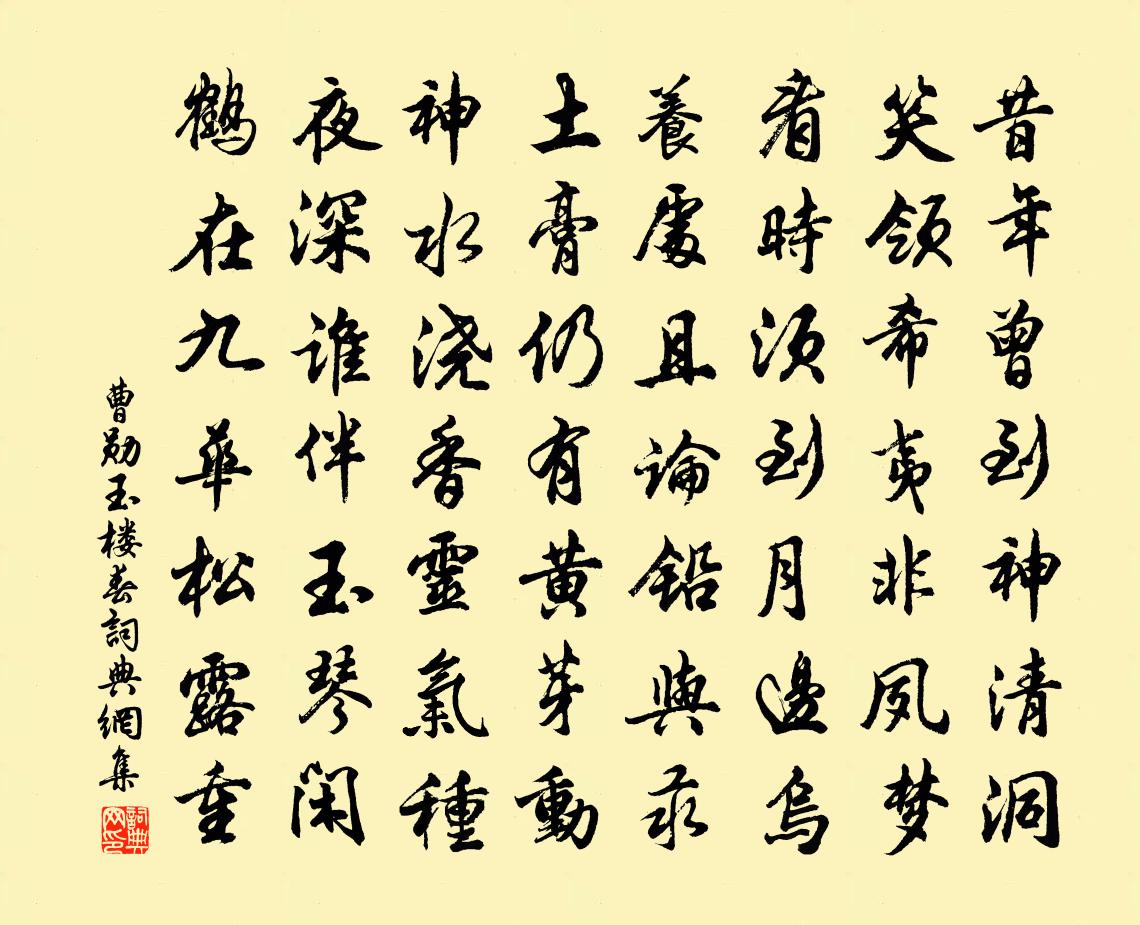 昔年曾到神清洞
笑领希夷非夙梦
看時须到月邊烏
養處且論铅與汞
土膏仍有黄芽動
神水浇香靈氣種
夜深谁伴玉琴闲
鶴在九華松露重
曹勋玉楼春詞典網集
詞典网印